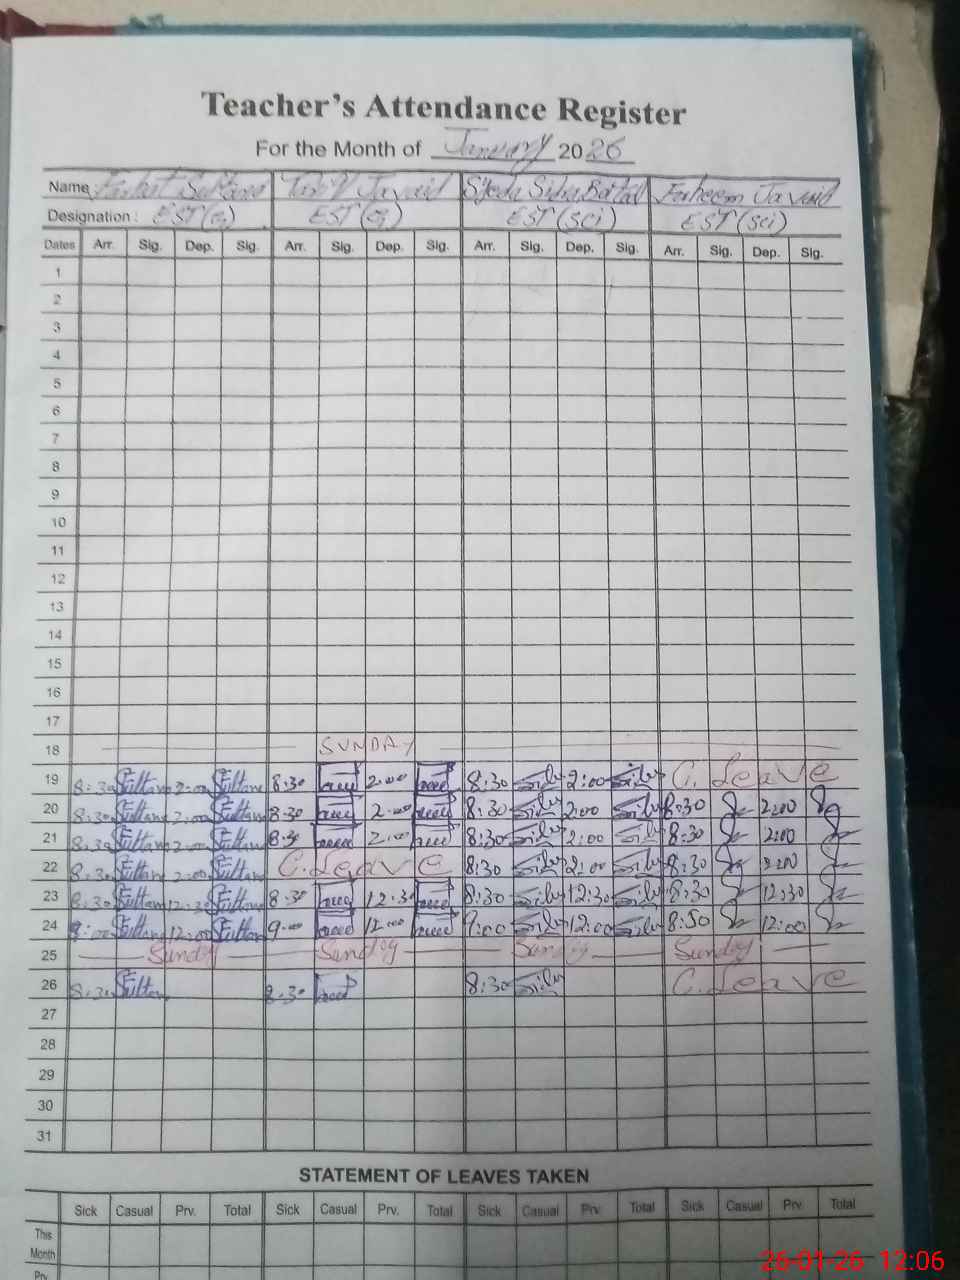 Teacher's Attendance Register
For the Month of January 2026
Name Farhat Sultana Javaid Syeda Batool Faheem Javaid
Designation : EST(G) EST(G) EST(Sci) EST(Sci)
Dates Arr. Sig. Dep. Sig. Arr. Sig. Dep. Sig. Arr. Sig. Dep. Sig. Arr. Sig. Dep. Sig.
1
2
3
4
5
6
7
8
9
10
11
12
13
14
15
16
17
18 SUNDAY
19 8:30 Sultana 2:00 Sultana 8:30 2:00 8:30 2:00 C. Leave
20 8:30 Sultana 2:00 Sultana 8:30 2:00 8:30 2:00 8:30 2:00
21 8:30 Sultana 2:00 Sultana 8:30 2:00 8:30 2:00 8:30 2:00
22 8:30 Sultana 2:00 Sultana C. Leave 8:30 2:00 8:30 2:00
23 8:30 Sultana 12:30 Sultana 8:30 12:30 8:30 12:30 8:30 12:30
24 Sultana 12:00 Sultana 9:00 12:00 9:00 12:00 8:50 12:00
25 Sunday Sunday Sunday Sunday
26 8:30 Sultana 8:30 8:30 C. Leave
27
28
29
30
31
STATEMENT OF LEAVES TAKEN
Sick Casual Prv. Total Sick Casual Prv. Total Sick Casual Prv. Total Sick Casual Prv. Total
This
Month
Prv.
26-01-26 12:06